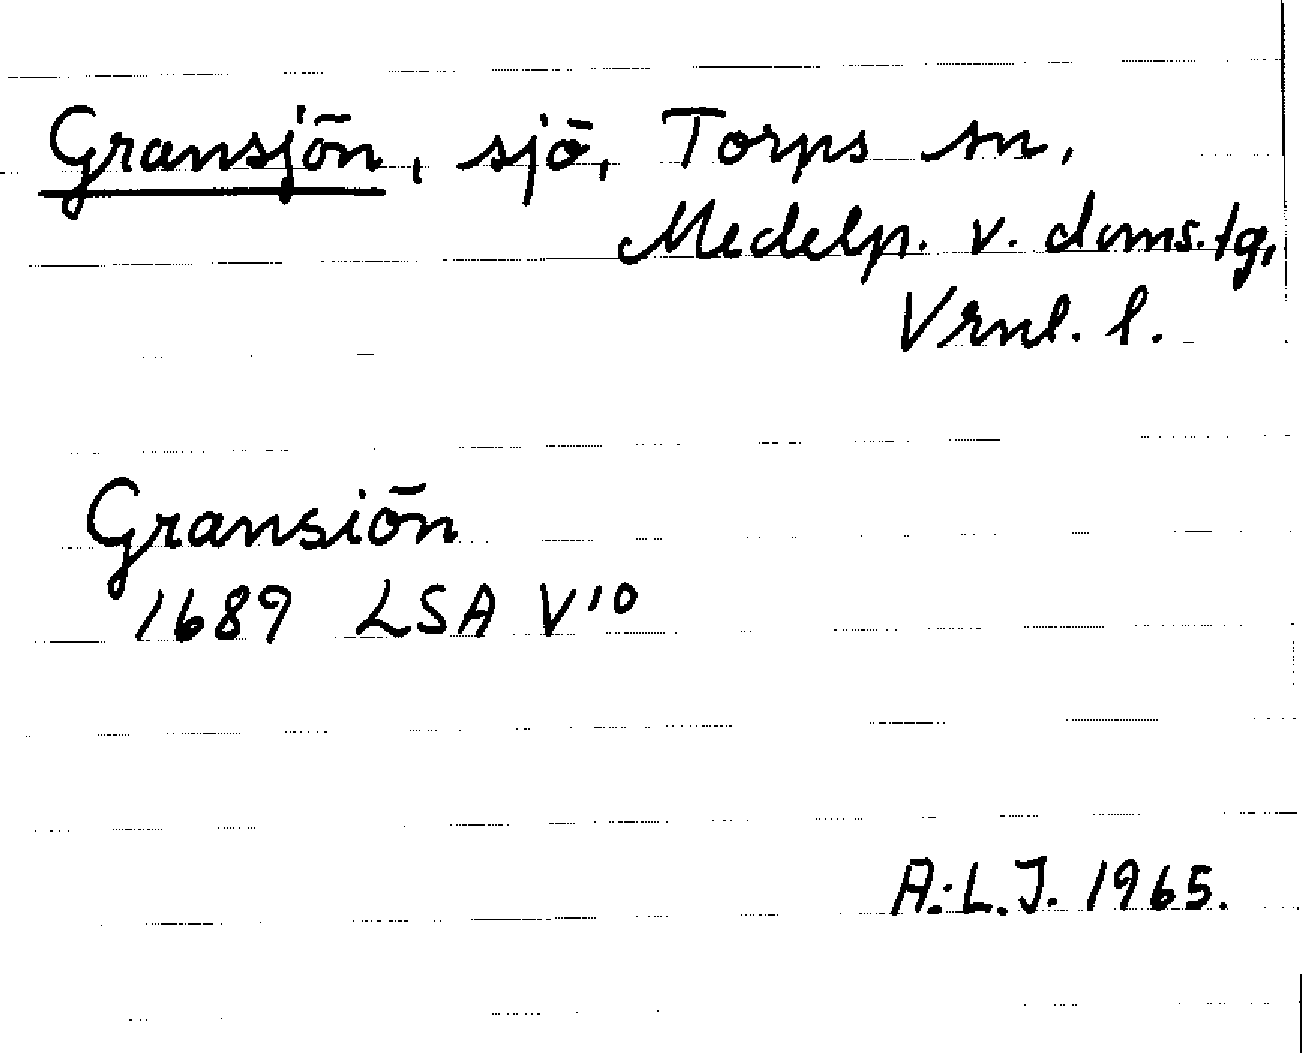 Gransjön, sjö, Torps sn,
Medelp. v. doms. tg,
Vrnl. l.
Gransiön
1689 LSA V 10
A.-L.J. 1965.